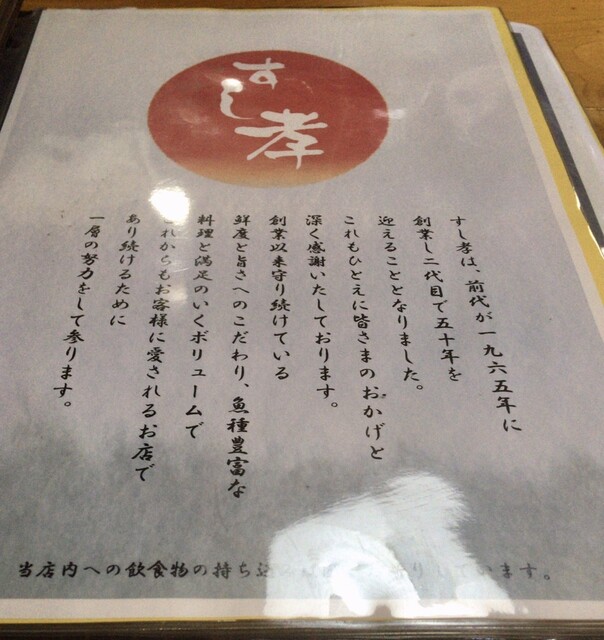 すし孝
すし孝は、前代が一九六五年に
創業し二代目で五十年を
迎えることとなりました。
これもひとえに皆さまのおかげと
深く感謝いたしております。
創業以来守り続けている
鮮度と旨さへのこだわり、魚種豊富な
料理と満足のいくボリュームで
これからもお客様に愛されるお店で
あり続けるために
一層の努力をして参ります。
当店内への飲食物の持ち込 います。